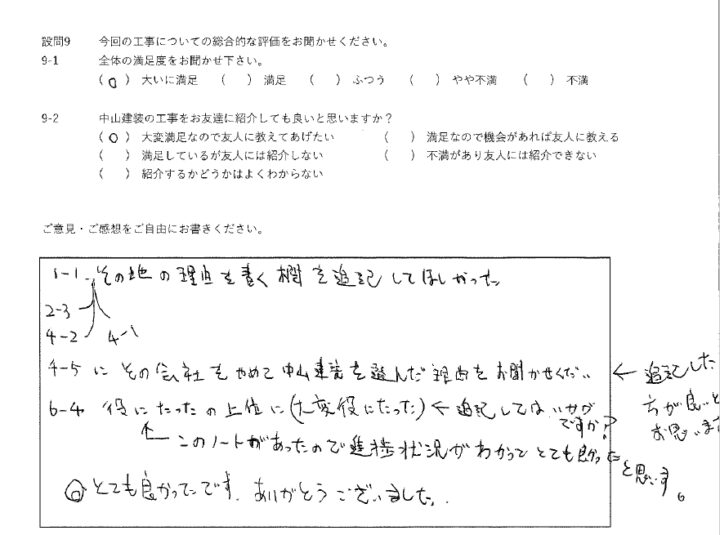 設問9 今回の工事についての総合的な評価をお聞かせください。
9-1 全体の満足度をお聞かせ下さい。
(○) 大いに満足 ( ) 満足 ( ) ふつう ( ) やや不満 ( ) 不満
9-2 中山建装の工事をお友達に紹介しても良いと思いますか？
(○) 大変満足なので友人に教えてあげたい ( ) 満足なので機会があれば友人に教える
( ) 満足しているが友人には紹介しない ( ) 不満があり友人には紹介できない
( ) 紹介するかどうかはよくわからない
ご意見・ご感想をご自由にお書きください。
1-1. その他の理由を書く欄を追記してほしかった
2-3
4-2 4-1
4-5 に その会社をやめて中山建装を選んだ理由をお聞かせください ← 追記した
方が良いと
お思います
6-4 役にたったの上位に(大変役にたった) ← 追記しては いかが
ですか？
← このノートがあったので進捗状況がわかって とても良かった
と思います。
◎とても良かったです。ありがとうございました。